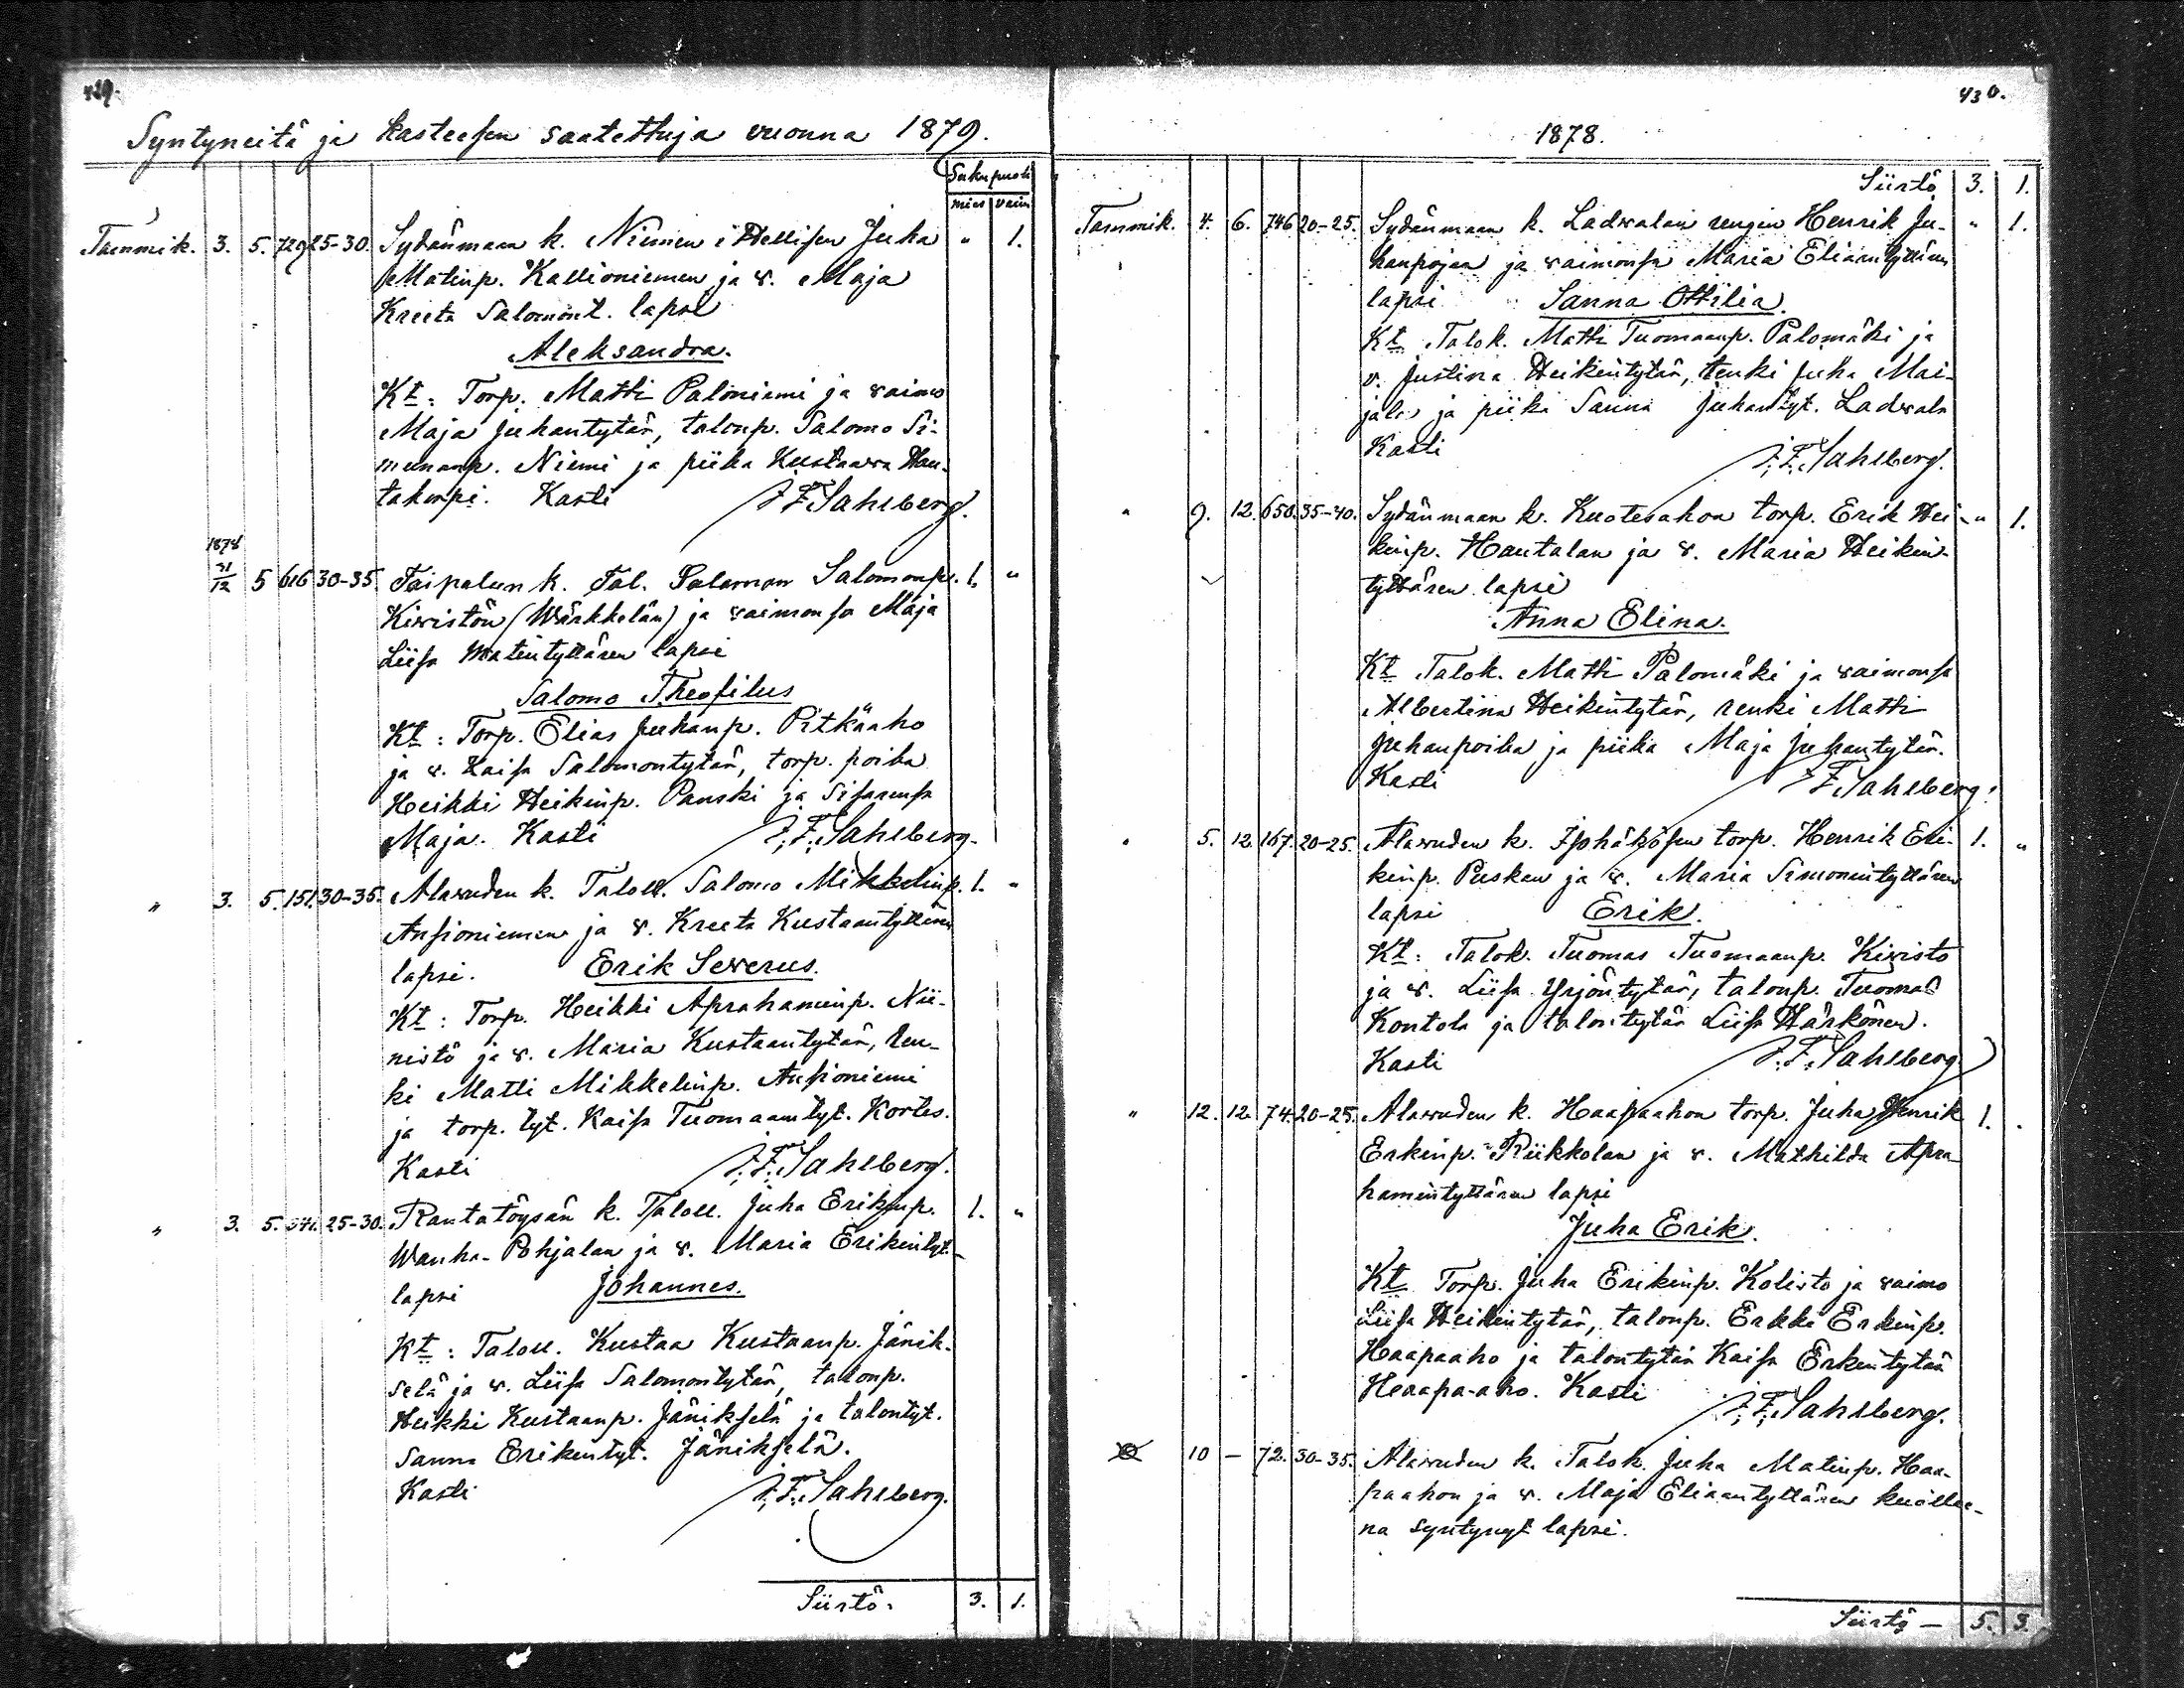 429.
Syntyneitä ja kasteesen saatettuja vuonna 1879.
Sukupuoli
mies vaim.
Tammik. 3. 5. 729 25-30. Sydänmaan k. Niemen itsellisen Juha " 1.
Matinp. Kallioniemen ja v. Maja
Kreeta Salomont. lapsi
Aleksandra.
Kt: Torp. Matti Paloniemi ja vaimo
Maja Juhantytär, talonp. Salomo Si-
munanp. Niemi ja piika Kustaava Hau-
takorpi. Kasti J. F. Sahlberg.
1878
31/12 5 616 30-35. Taipaleen k. Tal. Salomon Salomonp. 1. "
Kiviston (Wärkkelän) ja vaimonsa Maja
Liisa Matintyttären lapsi
Salomo Theofilus
Kt: Torp. Elias Juhanp. Pitkäaho
ja v. Kaisa Salomontytär, torp. poika
Heikki Heikinp. Panski ja sisarensa
Maja. Kasti J. F. Sahlberg.
" 3. 5. 151. 30-35. Alavuden k. Taloll. Salomo Mikkelinp. 1. "
Ansioniemen ja v. Kreeta Kustaantyttären
lapsi. Erik Severus.
Kt: Torp. Heikki Aprahaminp. Nii-
nistö ja v. Maria Kustaantytär, ren-
ki Matti Mikkelinp. Ansioniemi
ja torp. tyt. Kaisa Tuomaantyt. Kortes.
Kasti J. F. Sahlberg.
" 3. 5. 25-30. Rantatöysän k. Taloll. Juha Erikinp. 1. "
Wanha-Pohjalan ja v. Maria Erikintyt.
lapsi Johannes.
Kt: Taloll. Kustaa Kustaanp. Jänik-
selä ja v. Liisa Salomontytär, talonp.
Heikki Kustaanp. Jänikselä ja talontyt.
Sanna Erikintyt. Jänikselä.
Kasti J. F. Sahlberg.
Siirtö: 3. 1.
430.
1878.
Siirtö 3. 1.
Tammik. 4. 6. 746 20-25. Sydänmaan k. Ladvalan rengin Henrik Ju- " 1.
hanpojan ja vaimonsa Maria Eliaantyttären
lapsi Sanna Ottilia.
Kt Talok. Matti Tuomaanp. Palomäki ja
v. Justina Heikintytär, renki Juha Mai-
jala ja piika Sanna Juhantyt. Ladvala
Kasti J. F. Sahlberg.
" 9. 12. 650. 35-40. Sydänmaan k. Kuotesahon torp. Erik Hei- " 1.
kinp. Hautalan ja v. Maria Heikin-
tyttären lapsi
Anna Elina.
Kt Talok. Matti Palomäki ja vaimonsa
Albertina Heikintytär, renki Matti
Juhanpoika ja piika Maja Juhantytär.
Kasti J. F. Sahlberg.
" 5. 12. 167. 20-25. Alavuden k. torp. Henrik Eri- 1. "
kinp. Puskan ja v. Maria Simonintyttären
lapsi Erik.
Kt: Talok. Tuomas Tuomaanp. Kivisto
ja v. Liisa Yrjöntytär, talonp. Tuomas
Kontola ja talontytär Liisa Härkönen.
Kasti J. F. Sahlberg
" 12. 12. 74. 20-25. Alavuden k. Haapaahon torp. Juha Henrik 1. .
Erkinp. Riikkolan ja v. Mathilda Apra-
hamintyttären lapsi
Juha Erik.
Kt Torp. Juha Erikinp. Kolisto ja vaimo
Liisa Heikintytär, talonp. Erkki Erkinp.
Haapaaho ja talontytär Kaisa Erkintytär
Haapa-aho. Kasti J. F. Sahlberg.
10 - 72. 30-35. Alavuden k. Talok. Juha Matinp. Haa-
paahon ja v. Maja Eliaantyttären kuollee-
na syntynyt lapsi.
Siirtö - 5. 3.